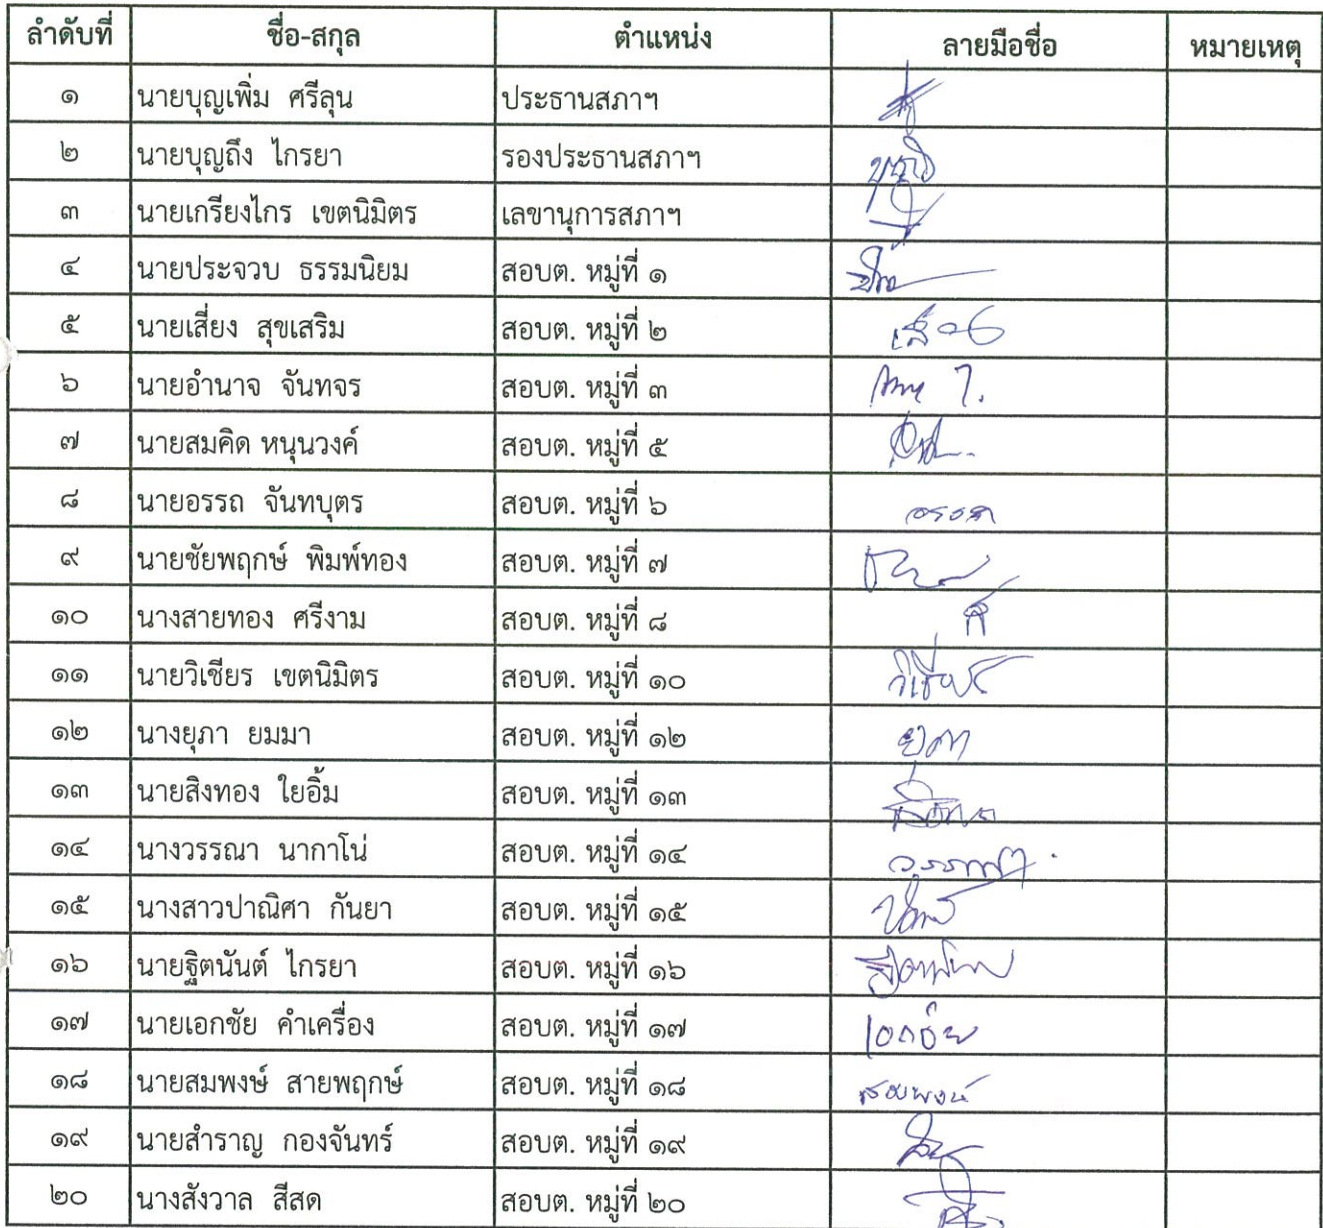 ลำดับที่ ชื่อ-สกุล ตำแหน่ง ลายมือชื่อ หมายเหตุ
๑ นายบุญเพิ่ม ศรีลุน ประธานสภาฯ
๒ นายบุญถึง ไกรยา รองประธานสภาฯ
๓ นายเกรียงไกร เขตนิมิตร เลขานุการสภาฯ
๔ นายประจวบ ธรรมนิยม สอบต. หมู่ที่ ๑
๕ นายเสี่ยง สุขเสริม สอบต. หมู่ที่ ๒
๖ นายอำนาจ จันทจร สอบต. หมู่ที่ ๓
๗ นายสมคิด หนุนวงค์ สอบต. หมู่ที่ ๕
๘ นายอรรถ จันทบุตร สอบต. หมู่ที่ ๖
๙ นายชัยพฤกษ์ พิมพ์ทอง สอบต. หมู่ที่ ๗
๑๐ นางสายทอง ศรีงาม สอบต. หมู่ที่ ๘
๑๑ นายวิเชียร เขตนิมิตร สอบต. หมู่ที่ ๑๐ วิเชียร
๑๒ นางยุภา ยมมา สอบต. หมู่ที่ ๑๒
๑๓ นายสิงทอง ใยอิ้ม สอบต. หมู่ที่ ๑๓
๑๔ นางวรรณา นากาโน่ สอบต. หมู่ที่ ๑๔ วรรณา
๑๕ นางสาวปาณิศา กันยา สอบต. หมู่ที่ ๑๕
๑๖ นายฐิตนันต์ ไกรยา สอบต. หมู่ที่ ๑๖
๑๗ นายเอกชัย คำเครื่อง สอบต. หมู่ที่ ๑๗ เอกชัย
๑๘ นายสมพงษ์ สายพฤกษ์ สอบต. หมู่ที่ ๑๘ สมพงษ์
๑๙ นายสำราญ กองจันทร์ สอบต. หมู่ที่ ๑๙
๒๐ นางสังวาล สีสด สอบต. หมู่ที่ ๒๐